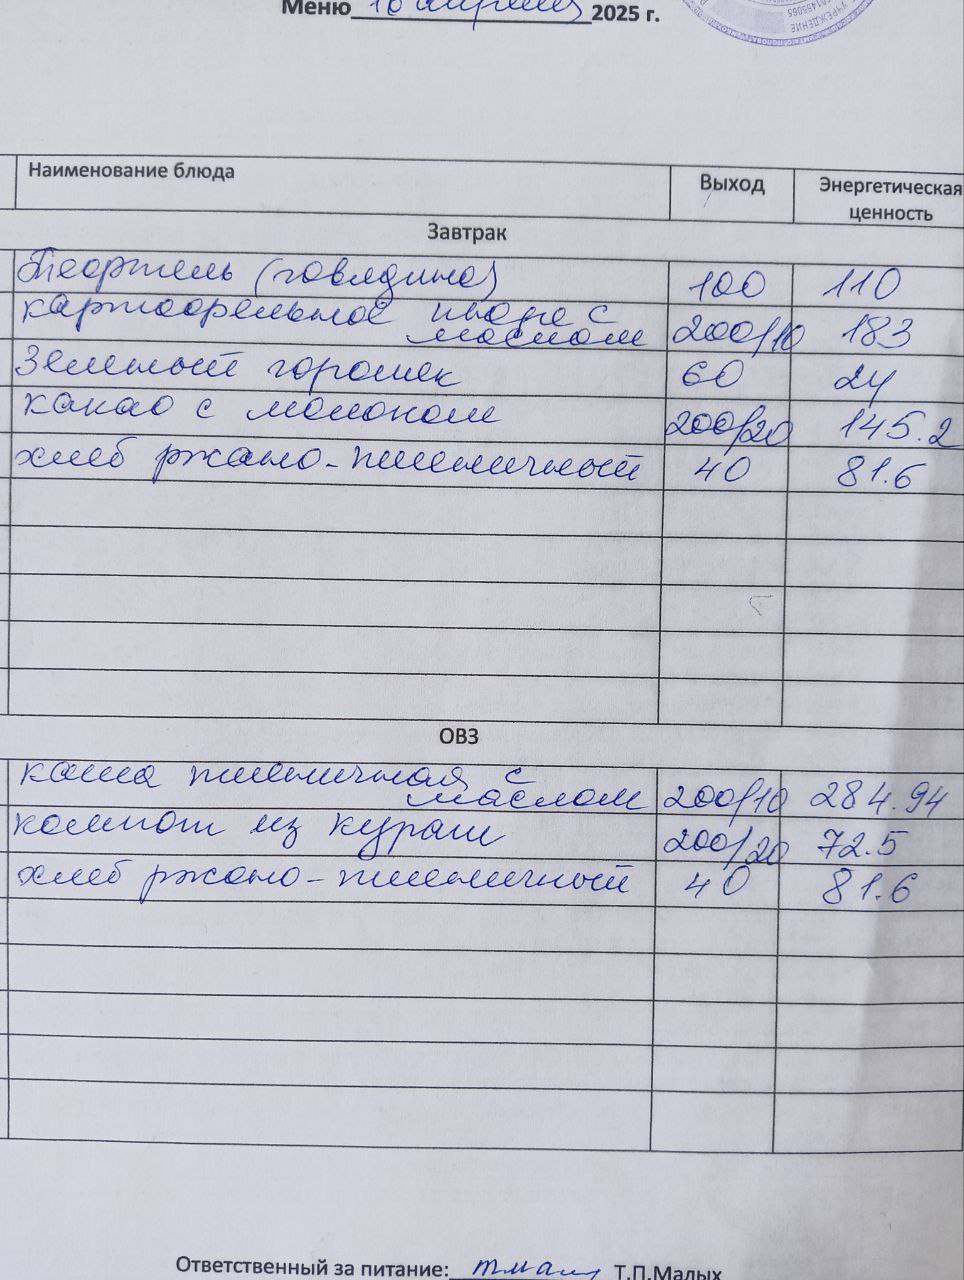 Меню 16 апреля 2025 г.
УЧРЕЖДЕНИЕ
Наименование блюда Выход Энергетическая ценность
Завтрак
Тефтель (говядина) 100 110
картофельное пюре с маслом 200/10 183
Зеленый горошек 60 24
какао с молоком 200/20 145.2
хлеб ржано-пшеничный 40 81.6
ОВЗ
каша пшеничная с маслом 200/10 284.94
компот из кураги 200/20 72.5
хлеб ржано-пшеничный 40 81.6
Ответственный за питание: Т.П.Малых